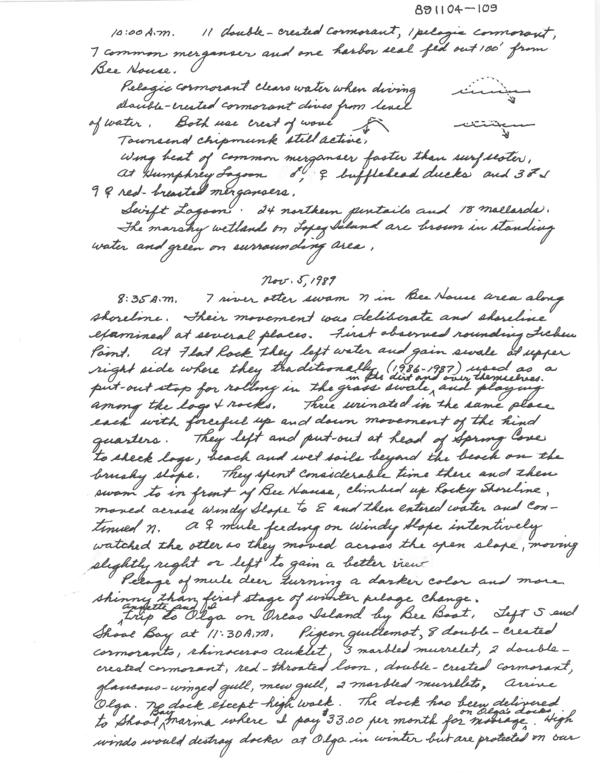 891104-109
10:00 A.M. 11 double-crested cormorant, 1 pelagic cormorant,
7 common merganser and one harbor seal fed out 100' from
Bee House.
Pelagic cormorant clears water when diving
Double-crested cormorant dives from level
of water. Both use crest of wave
Townsend chipmunk still active.
Wing beat of common merganser faster than surf scoter.
At Humphrey Lagoon ♂, ♀ bufflehead ducks and 3 ♂ &
9 ♀ red-breasted mergansers.
Swift Lagoon. 24 northern pintails and 18 mallards.
The marshy wetlands on Lopez Island are brown in standing
water and green on surrounding area.
Nov. 5, 1989
8:35 A.M. 7 river otter swam N in Bee House area along
shoreline. Their movement was deliberate and shoreline
examined at several places. First observed rounding Lichen
Point. At Flat Rock they left water and gain swale at upper
right side where they traditionally (1986-1987) used as a
in the dirt and over themselves.
put-out stop for rolling in the grass swale, and playing
among the logs & rocks. Three urinated in the same place
each with forceful up and down movement of the hind
quarters. They left and put-out at head of Spring Cove
to check logs, beach and wet soils beyond the beach on the
brushy slope. They spent considerable time there and then
swam to in front of Bee House, climbed up Rocky Shoreline,
moved across Windy Slope to E and then entered water and con-
tinued N. A ♀ mule feeding on Windy Slope intentively
watched the otter as they moved across the open slope, moving
slightly right or left to gain a better view
Pelage of mule deer turning a darker color and more
skinny than first stage of winter pelage change.
Annette and I
Trip to Olga on Orcas Island by Bee Boat. Left S end
Shoal Bay at 11:30 A.M. Pigeon guillemot, 8 double-crested
cormorants, rhinoceros auklet, 3 marbled murrelet, 2 double-
crested cormorant, red-throated loon, double-crested cormorant,
glaucous-winged gull, mew gull, 2 marbled murrelets. Arrive
Olga. No dock except high walk. The dock has been delivered
Bay on Olga's docks
to Shoal Marina where I pay $33.00 per month for moorage. High
winds would destroy docks at Olga in winter but are protected on our